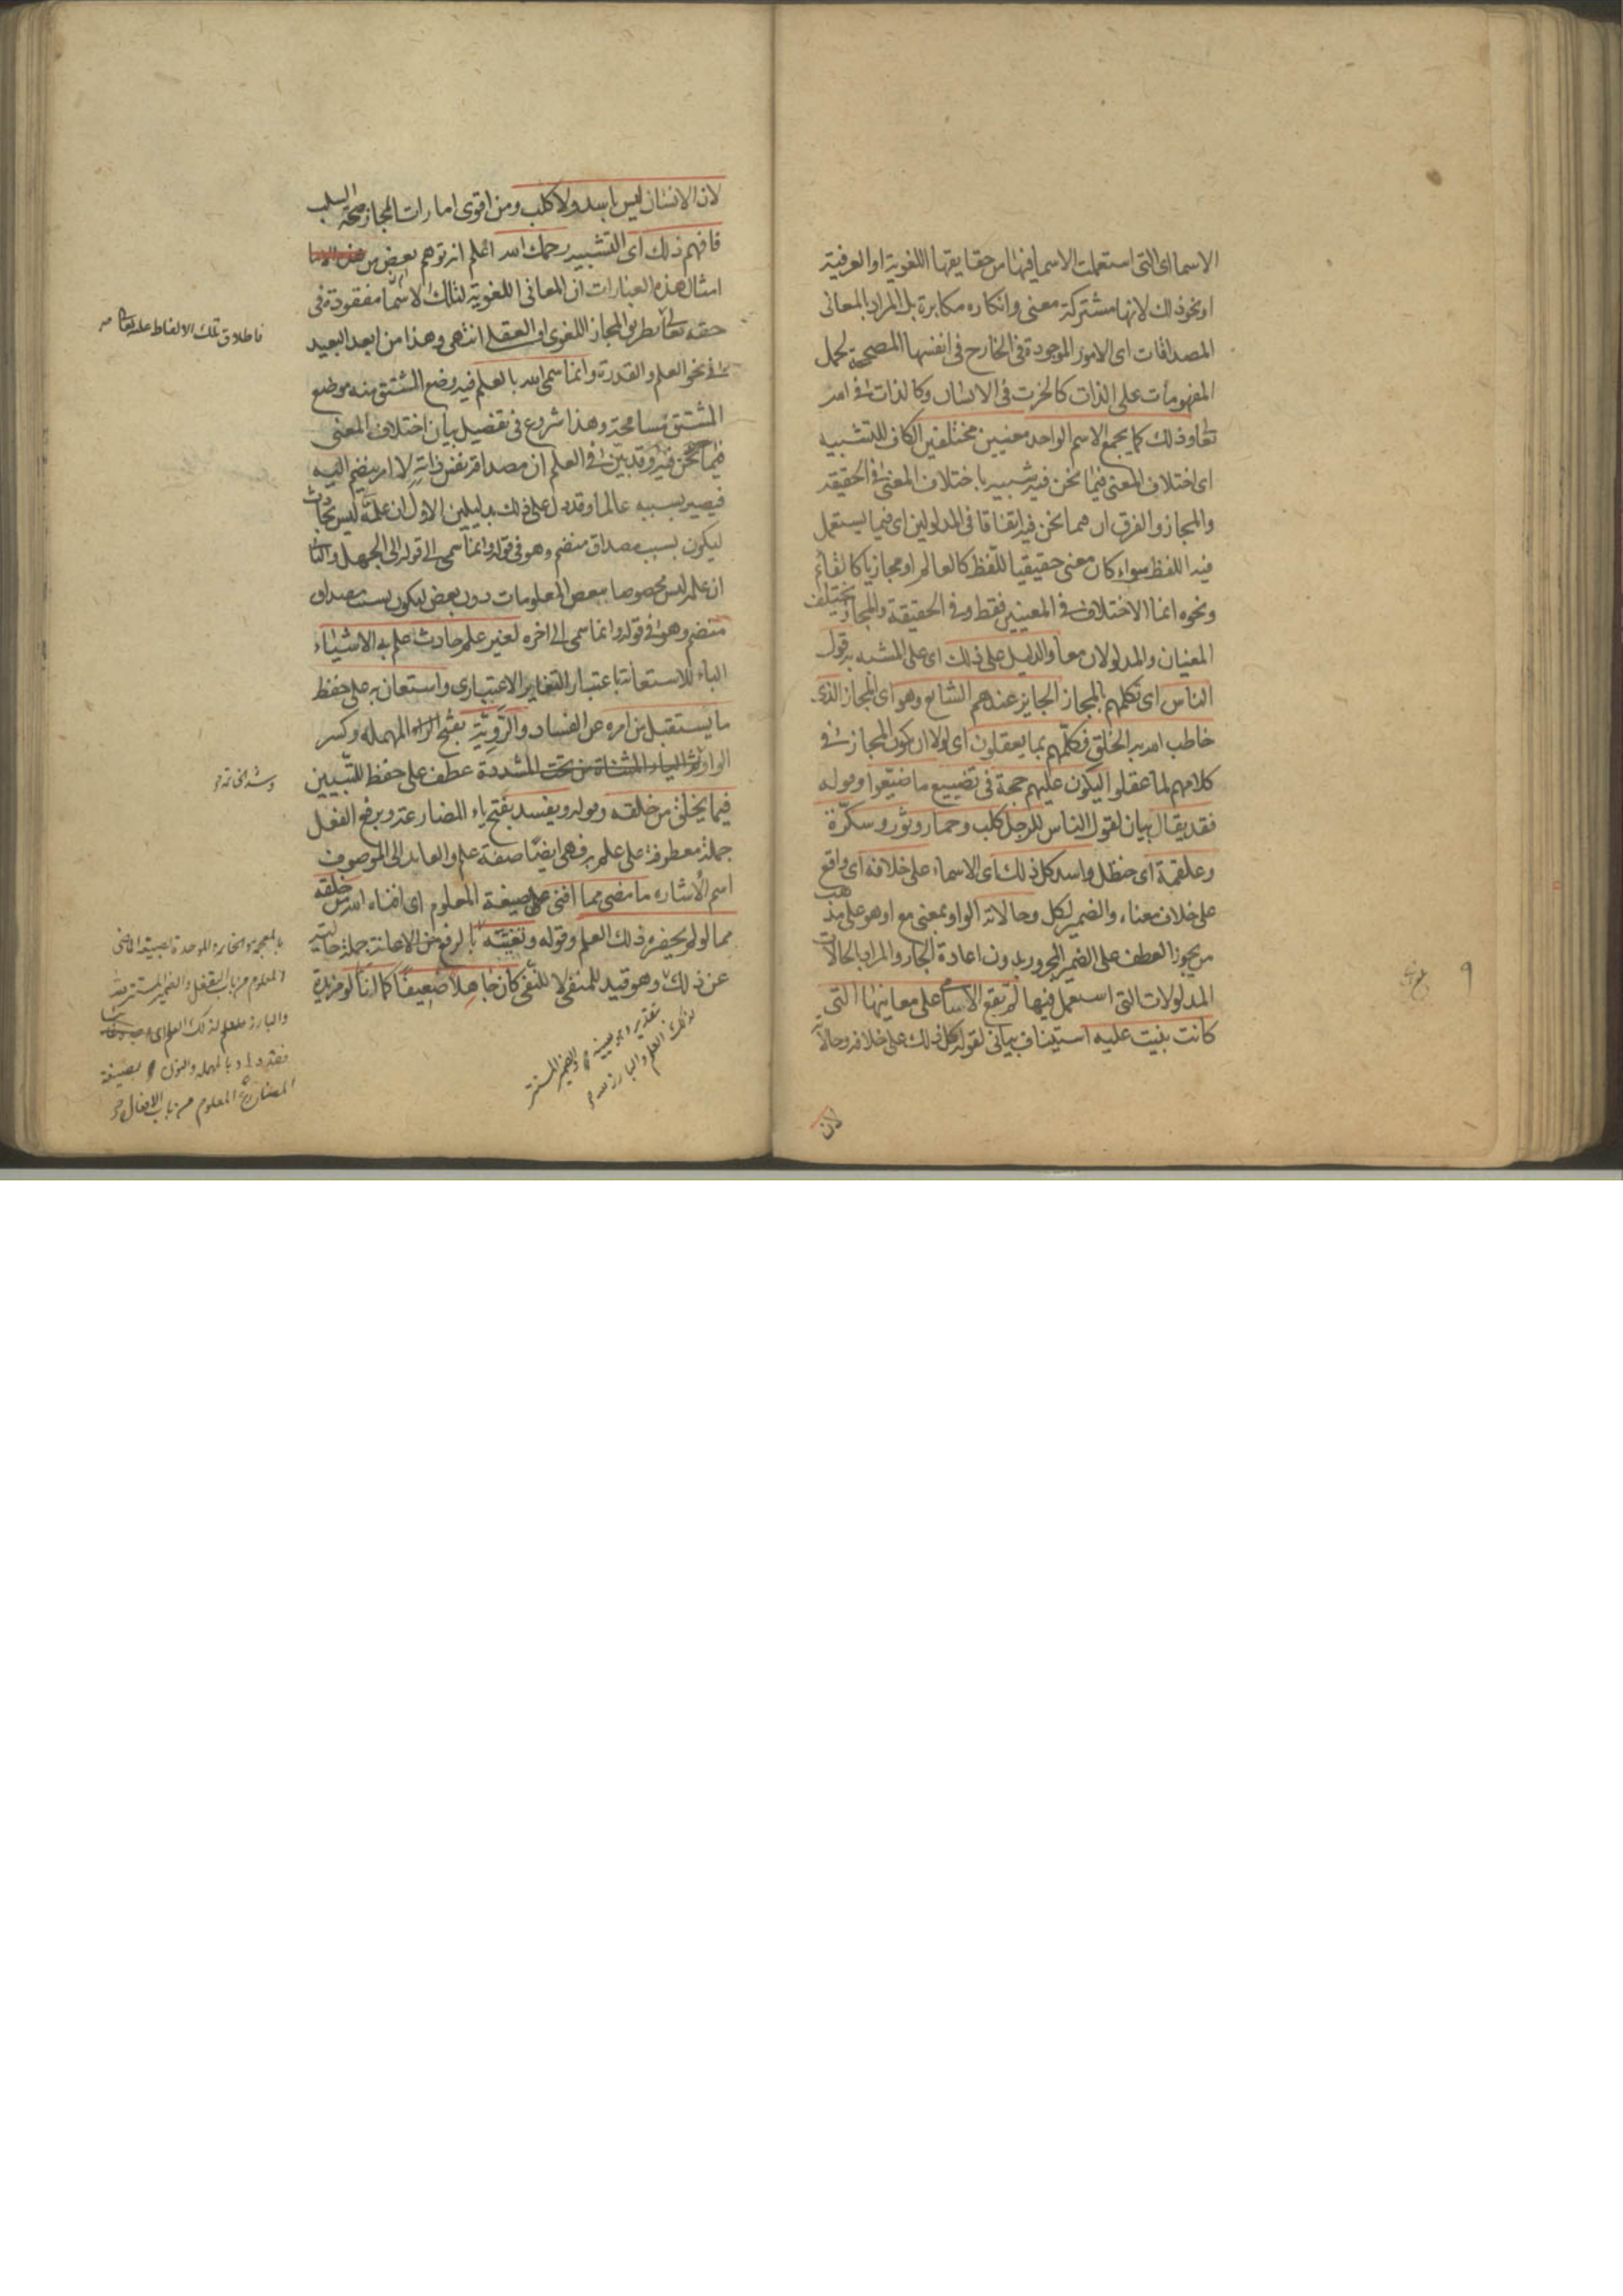 الاسما اى التى استعملت الاسما فيها من حقايقها اللغوية او العرفية
او نحو ذلك لانها مشتركة معنى وانكاره مكابرة بل المراد بالمعانى
المصداقات اى الامور الموجودة فى الخارج فى انفسها المصححة لحمل
المفهومات على الذات كالخرت فى الانسان وكالذات فى الله
تعا وذلك كما يجمع الاسم الواحد معنيين مختلفين الكاف للتشبيه
اى اختلاف المعنى فيما نحن فيه شبيه باختلاف المعنى فى الحقيقة
والمجاز والفرق ان هما نحن فيه اتفاقا فى المدلولين اى فيما يستعمل
فيه اللفظ سواء كان معنى حقيقيا للفظ كالعالم او مجازيا كالقائم
ونحوه انما الاختلاف فى المعنيين فقط وفى الحقيقة والمجاز يختلف
المعنيان والمدلولان معا والدليل على ذلك اى على المشبه به قول
الناس اى تكلمهم بالمجاز الجايز عندهم الشايع وهو اى المجاز الذى
خاطب الله به الخلق فكلمهم بما يعقلون اى لولا ان يكون المجاز فى
كلامهم لما عقلوا ليكون عليهم حجة فى تضييع ما ضيعوا وقوله
فقد يقال بيان لقول الناس للرجل كلب وحمار وثور وسكرة
وعلقمة اى حنظل واسد كل ذلك اى الاسماء على خلافه اى واقع
على خلاف معناه والضمير لكل وحالاته الواو بمعنى مع او هو على مذهب
من يجوز العطف على الضمير المجرور بدون اعادة الجار والمراد بالحالات
المدلولات التى استعمل فيها لم تقع الاسامى على معانيها التى
كانت بنيت عليه استيناف بيانى لقوله كل ذلك على خلافه وحالاته
لان
٩
لان الانسان ليس باسد ولا كلب ومن اقوى امارات المجاز صحة السلب
فافهم ذلك اى التشبيه رحمك الله اعلم انه توهم بعض من
امثال هذه العبارات ان المعانى اللغوية لتلك الاسما مفقودة فى
حقه تعالى بطريق المجاز اللغوى او العقلى انتهى وهذا من ابعد البعيد
فى نحو العلم والقدرة وانما سمى الله بالعلم فيه وضع المشتق منه موضع
المشتق مسامحة وهذا شروع فى تفصيل بيان اختلاف المعنى
فيما نحن فيه وقد بين فى العلم ان مصداقه نفس ذاته لا امر ينضم اليه
فيصير بسببه عالما وقد دل على ذلك بدليلين الاول ان علمه ليس بحادث
ليكون بسبب مصداق منضم وهو فى قوله وانما سمى الى قوله الى الجهل والثانى
ان علمه ليس مخصوصا ببعض المعلومات دون بعض ليكون بسبب مصداق
منضم وهو فى قوله وانما سمى الى اخره لغير علم حادث علم به الاشياء
الباء للاستعانة باعتبار التغاير الاعتبارى واستعان به على حفظ
ما يستقبل من امره عن الفساد والروية بفتح الراء المهملة وكسر
الواو والياء المثناة من تحت المشددة عطف على حفظ للتبيين
فيما يخلق من خلقه وقوله ويفسد بفتح ياء المضارعة وبرفع الفعل
جملة معطوفة على علم به فهى ايضا صفة علم والعايد الى الموصوف
اسم الاشارة ما مضى مما افنى على صيغة المعلوم اى افناه الله من خلقه
مما لو لم يحضره ذلك العلم وقوله وتغيبه بالرفع من الاعانة جملة حالية
عن ذلك وهو قيد للمنفى لا للنفى كان جاهلا ضعيفا كما انا لو فرية
فاطلاق تلك الالفاظ عليه تعالى
وشد الخانة
بالمعجمة والخاء والموحدة بصيغة الماضى
المعلوم من باب التفعل والضمير المستتر لله
والبارز للعلم لذلك العلم اى
بالمهملة والنون بصيغة
المضارع المعلوم من باب الافعال
بتقدير والضمير المستتر
لذلك العلم والبارز لله